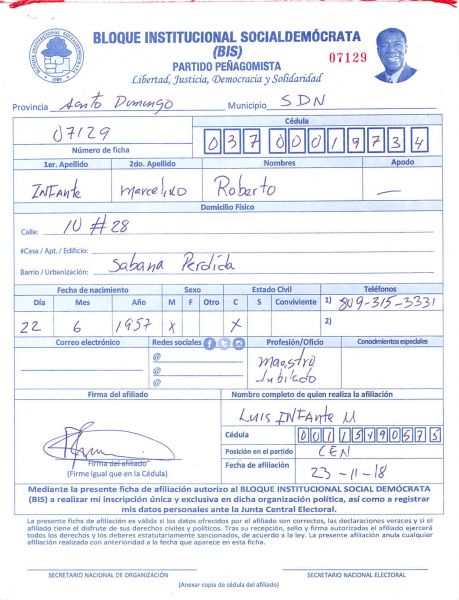 BLOQUE INSTITUCIONAL SOCIALDEMÓCRATA
(BIS)
PARTIDO PEÑAGOMISTA
07129
Libertad, Justicia, Democracia y Solidaridad
Provincia Santo Domingo Municipio SDN
07129
Número de ficha
Cédula
03700019734
1er. Apellido 2do. Apellido Nombres Apodo
INFANTE Marcelino Roberto —
Domicilio Físico
Calle: 10 # 28
#Casa / Apt. / Edificio:
Barrio / Urbanización: Sabana Perdida
Fecha de nacimiento Sexo Estado Civil Teléfonos
Día Mes Año M F Otro C S Conviviente 1) 809-315-3331
22 6 1957 X X 2)
Correo electrónico Redes sociales Profesión/Oficio Conodmientos especiales
@
@
@
Maestro
Jubilado
Firma del afiliado Nombre completo de quien realiza la afiliación
Luis INFANTE M
Cédula 00115490575
Posición en el partido CEN
Fecha de afiliación 23-11-18
Firma del afiliado
(Firme igual que en la Cédula)
Mediante la presente ficha de afiliación autorizo al BLOQUE INSTITUCIONAL SOCIAL DEMÓCRATA
(BIS) a realizar mi inscripción única y exclusiva en dicha organización política, así como a registrar
mis datos personales ante la Junta Central Electoral.
La presente ficha de afiliación es válida si los datos ofrecidos por el afiliado son correctos, las declaraciones veraces y si el
afiliado tiene el disfrute de sus derechos civiles y políticos. Tras su recepción, sello y firma autorizadas el afiliado ejercerá
todos los derechos y los deberes estatutariamente sancionados, de acuerdo a la ley. La presente afiliación anula cualquier
afiliación realizada con anterioridad a la fecha que aparece en esta ficha.
SECRETARIO NACIONAL DE ORGANIZACIÓN SECRETARIO NACIONAL ELECTORAL
(Anexar copia de cédula del afiliado)